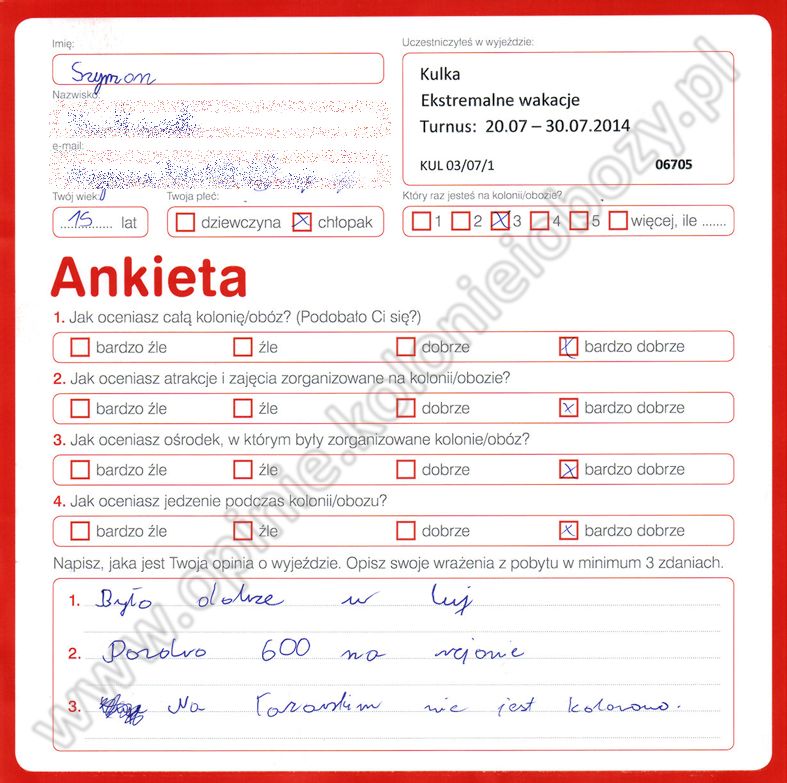 Imię:
Szymon
Nazwisko:
e-mail:
Twój wiek:
15 lat
Twoja płeć:
dziewczyna chłopak
Uczestniczyłeś w wyjeździe:
Kulka
Ekstremalne wakacje
Turnus: 20.07 – 30.07.2014
KUL 03/07/1 06705
Który raz jesteś na kolonii/obozie?
1 2 3 4 5 więcej, ile .......
Ankieta
1. Jak oceniasz całą kolonię/obóz? (Podobało Ci się?)
bardzo źle źle dobrze bardzo dobrze
2. Jak oceniasz atrakcje i zajęcia zorganizowane na kolonii/obozie?
bardzo źle źle dobrze bardzo dobrze
3. Jak oceniasz ośrodek, w którym były zorganizowane kolonie/obóz?
bardzo źle źle dobrze bardzo dobrze
4. Jak oceniasz jedzenie podczas kolonii/obozu?
bardzo źle źle dobrze bardzo dobrze
Napisz, jaka jest Twoja opinia o wyjeździe. Opisz swoje wrażenia z pobytu w minimum 3 zdaniach.
1. Było dobrze w luj
2. Pozdro 600 na rejonie
3. Na jest kolorowo.
www.opinie.kolonieiobozy.pl